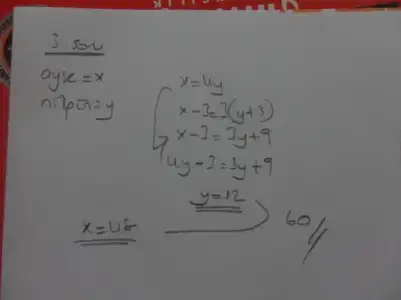 3. soru
ayşe = x
x = 4y
x - 3 = 3(y+3)
x - 3 = 3y + 9
4y - 3 = 3y + 9
y = 12
x = 48
60 //